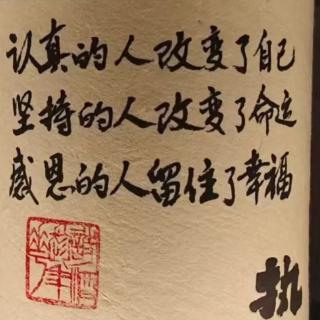 认真的人改变了自己
坚持的人改变了命运
感恩的人留住了幸福
执